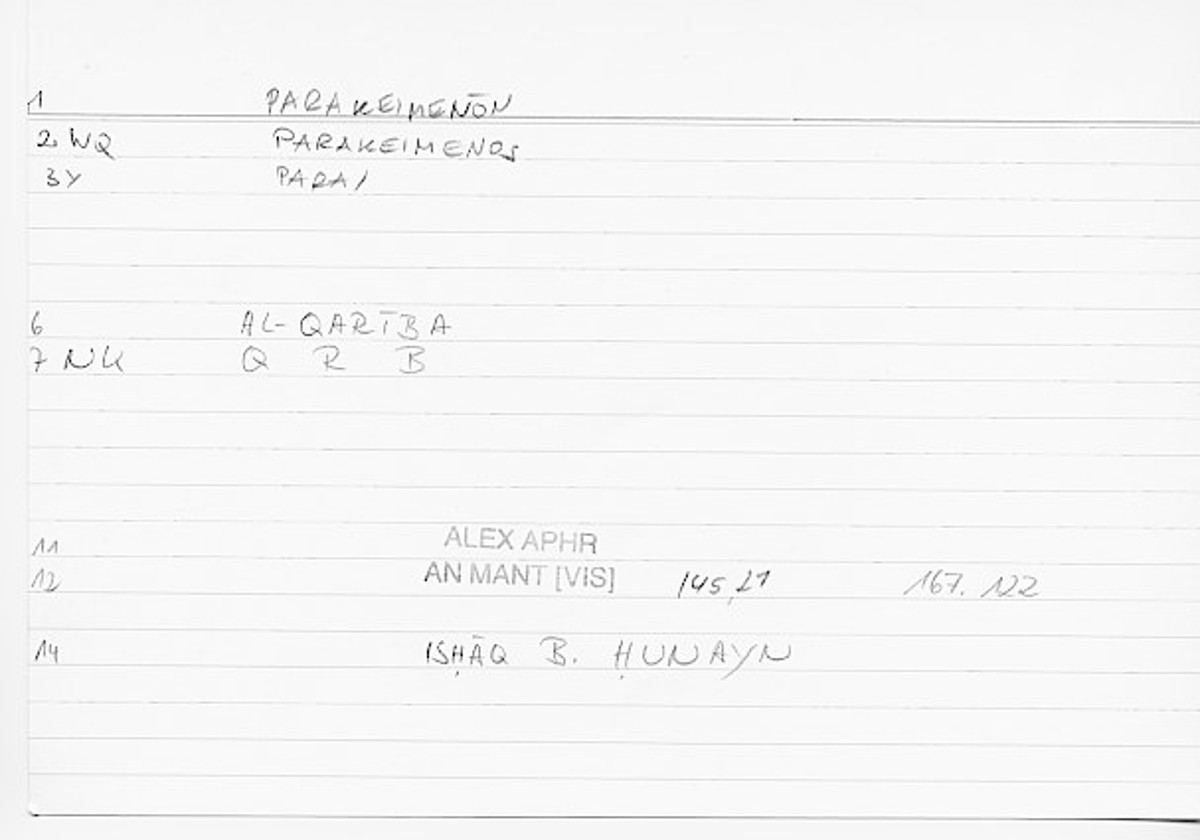 1 PARAKEIMENŌN
2 WQ PARAKEIMENOS
3 Y PARA/
6 AL-QARĪBA
7 NK Q R B
11 ALEX APHR
12 AN MANT [VIS] 145,21 167.122
14 ISḤĀQ B. ḤUNAYN